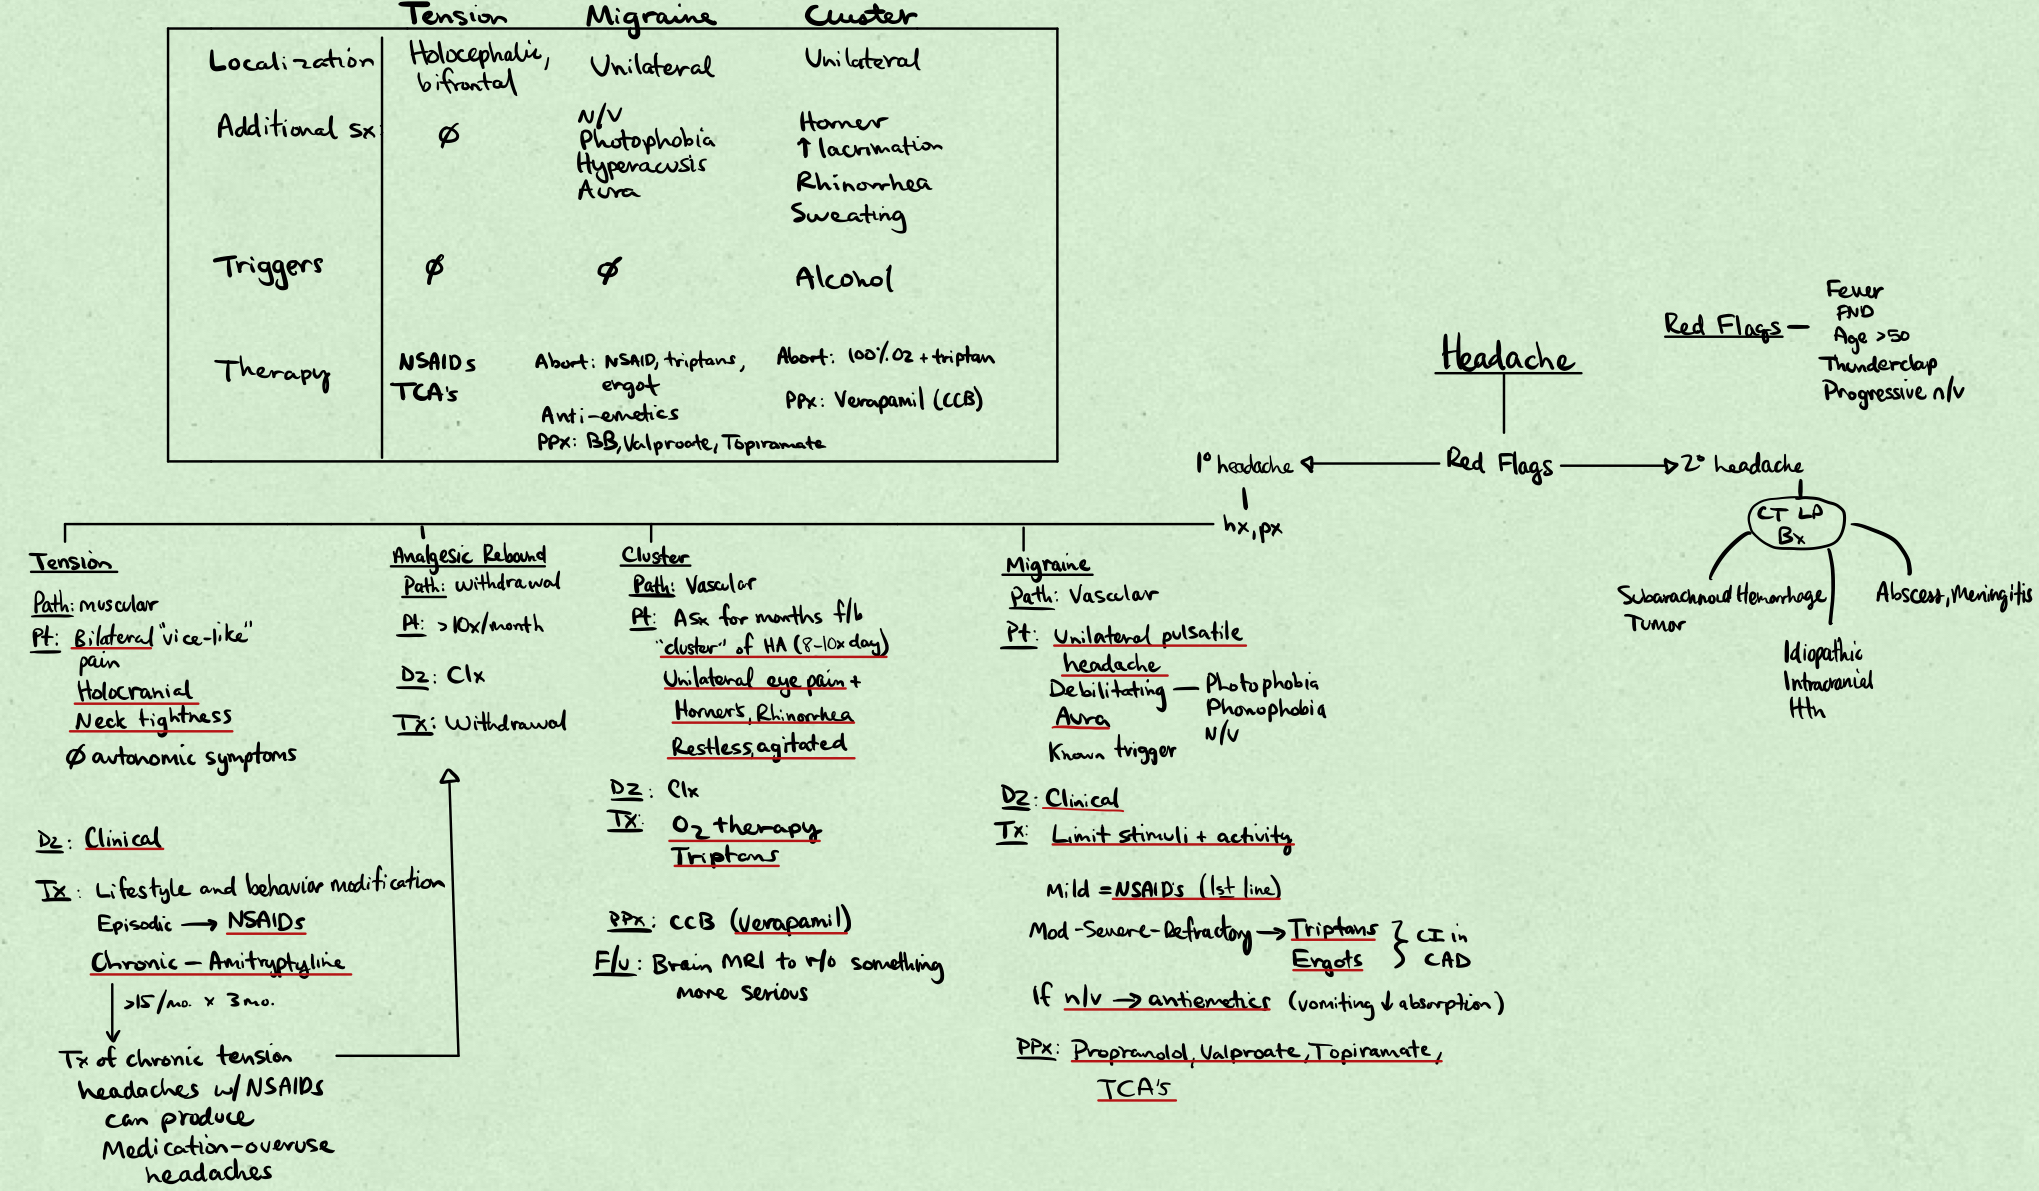 Tension Migraine Cluster
Localization Holocephalic, bifrontal Unilateral Unilateral
Additional sx: ∅ N/V Horner
Photophobia ↑ lacrimation
Hyperacusis Rhinorrhea
Aura Sweating
Triggers ∅ ∅ Alcohol
Therapy NSAIDs Abort: NSAID, triptans, Abort: 100% O2 + triptan
TCA's ergot PPx: Verapamil (CCB)
Anti-emetics
PPx: BB, Valproate, Topiramate
Headache
Red Flags — Fever
FND
Age >50
Thunderclap
Progressive n/v
1° headache ← Red Flags → 2° headache
hx, px
CT LP
Bx
Subarachnoid Hemorrhage
Tumor
Idiopathic
Intracranial
Htn
Abscess, Meningitis
Tension
Path: muscular
Pt: Bilateral "vice-like"
pain
Holocranial
Neck tightness
∅ autonomic symptoms
Dz: Clinical
Tx: Lifestyle and behavior modification
Episodic → NSAIDs
Chronic - Amitryptyline
>15/mo. x 3mo.
Tx of chronic tension
headaches w/ NSAIDs
can produce
Medication-overuse
headaches
Analgesic Rebound
Path: withdrawal
Pt: >10x/month
Dz: Clx
Tx: Withdrawal
Cluster
Path: Vascular
Pt: ASx for months f/b
"cluster" of HA (8-10x day)
Unilateral eye pain +
Horner's, Rhinorrhea
Restless, agitated
Dz: Clx
Tx: O2 therapy
Triptans
PPx: CCB (verapamil)
F/u: Brain MRI to r/o something
more serious
Migraine
Path: Vascular
Pt: Unilateral pulsatile
headache
Debilitating — Photophobia
Phonophobia
N/V
Aura
Known trigger
Dz: Clinical
Tx: Limit stimuli + activity
Mild = NSAID's (1st line)
Mod-Severe-Refractory → Triptans } CI in
Ergots CAD
If n/v → antiemetics (vomiting ↓ absorption)
PPx: Propranolol, Valproate, Topiramate,
TCA's